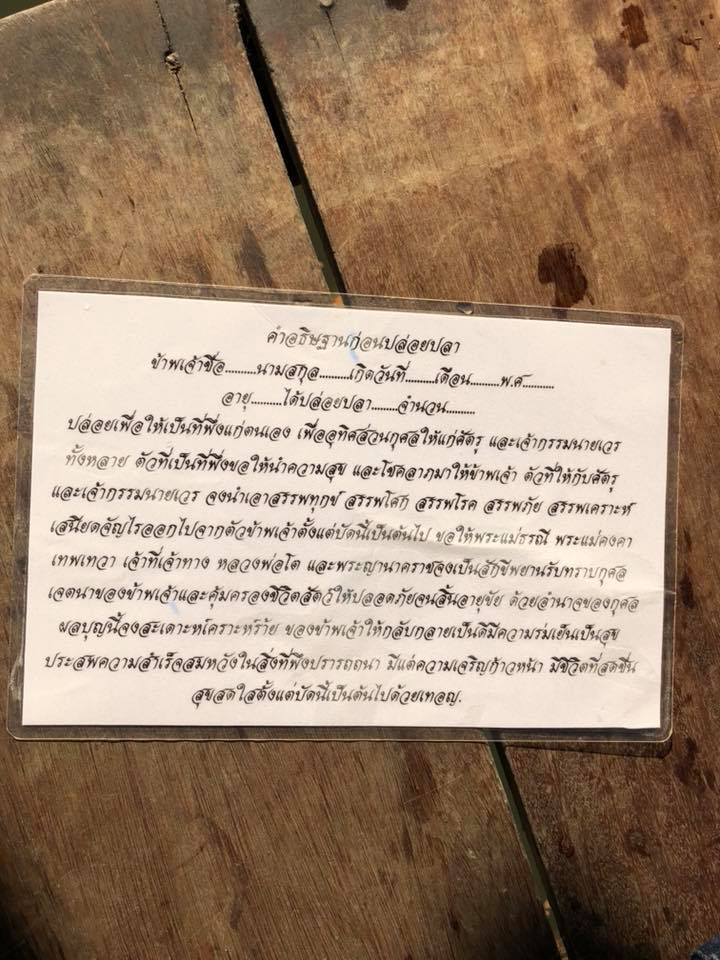 คำอธิษฐานก่อนปล่อยปลา
ข้าพเจ้าชื่อ..........นามสกุล...........เกิดวันที่..........เดือน..........พ.ศ...........
อายุ..........ได้ปล่อยปลา.........จำนวน..........
ปล่อยเพื่อให้เป็นที่พึ่งแก่ตนเอง เพื่ออุทิศส่วนกุศลให้แก่ศัตรู และเจ้ากรรมนายเวร
ทั้งหลาย ตัวที่เป็นที่พึ่งขอให้นำความสุข และโชคลาภมาให้ข้าพเจ้า ตัวที่ให้กับศัตรู
และเจ้ากรรมนายเวร จงนำเอาสรรพทุกข์ สรรพโศก สรรพโรค สรรพภัย สรรพเคราะห์
เสนียดจัญไรออกไปจากตัวข้าพเจ้าตั้งแต่บัดนี้เป็นต้นไป ขอให้พระแม่ธรณี พระแม่คงคา
เทพเทวา เจ้าที่เจ้าทาง หลวงพ่อโต และพระญานาคราชจงเป็นสักขีพยานรับทราบกุศล
เจตนาของข้าพเจ้าและคุ้มครองชีวิตสัตว์ให้ปลอดภัยจนสิ้นอายุขัย ด้วยอำนาจของกุศล
ผลบุญนี้จงสะเดาะห์เคราะห์ร้าย ของข้าพเจ้าให้กลับกลายเป็นดีมีความร่มเย็นเป็นสุข
ประสพความสำเร็จสมหวังในสิ่งที่พึงปรารถถนา มีแต่ความเจริญก้าวหน้า มีชีวิตที่สดชื่น
สุขสดใสตั้งแต่บัดนี้เป็นต้นไปด้วยเทอญ.